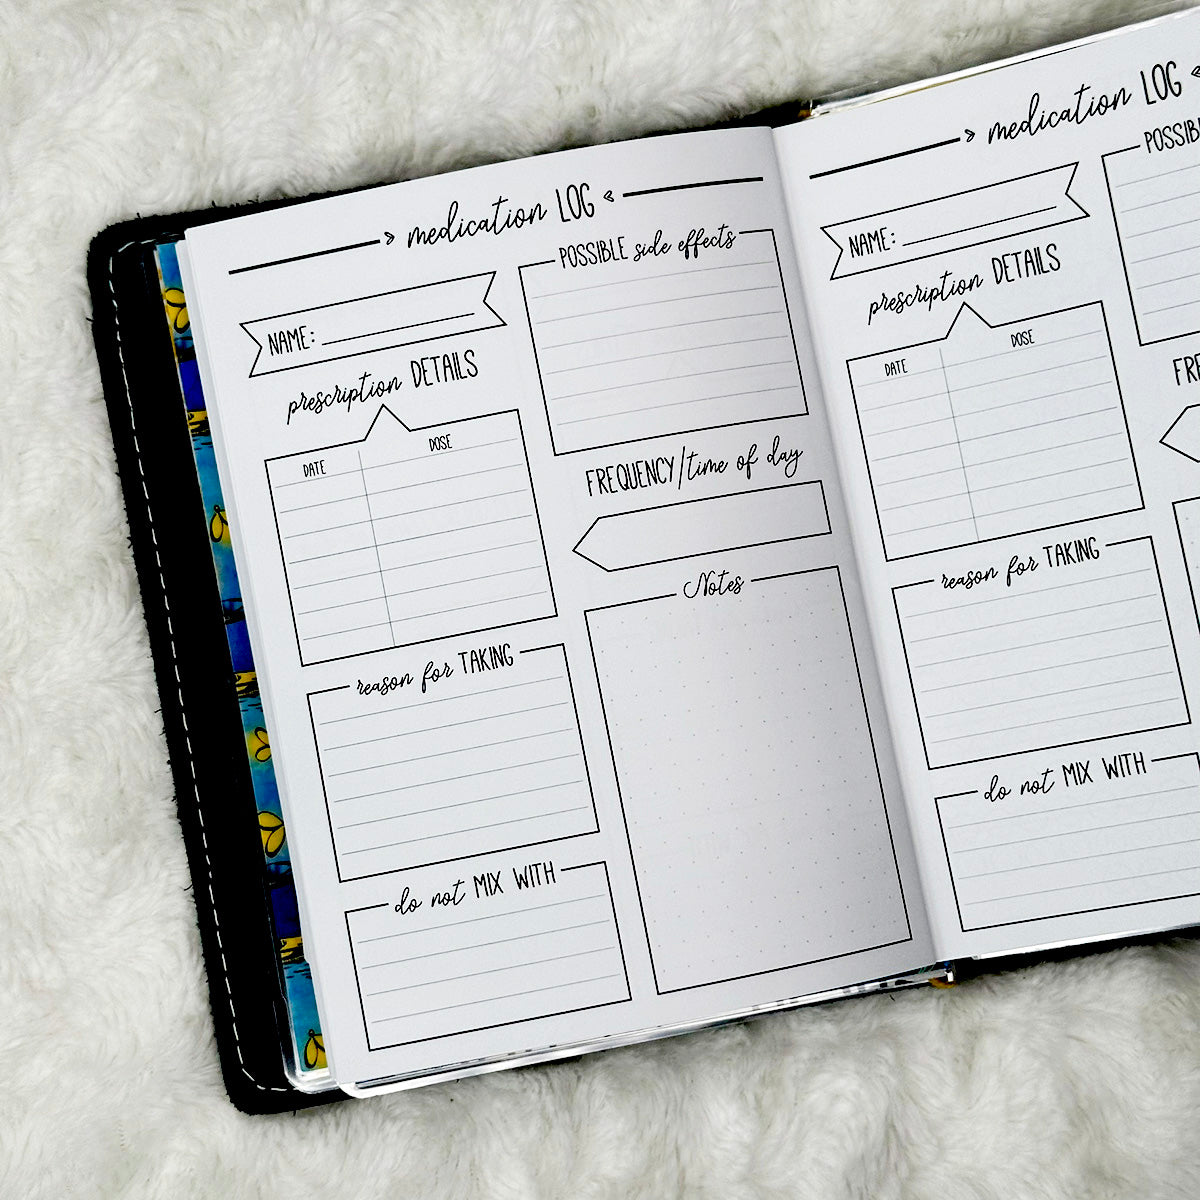 medication LOG
NAME:
prescription DETAILS
DATE DOSE
reason for TAKING
do not MIX WITH
POSSIBLE side effects
FREQUENCY/time of day
Notes
medication LOG
NAME:
prescription DETAILS
DATE DOSE
reason for TAKING
do not MIX WITH
POSSIB
FRE